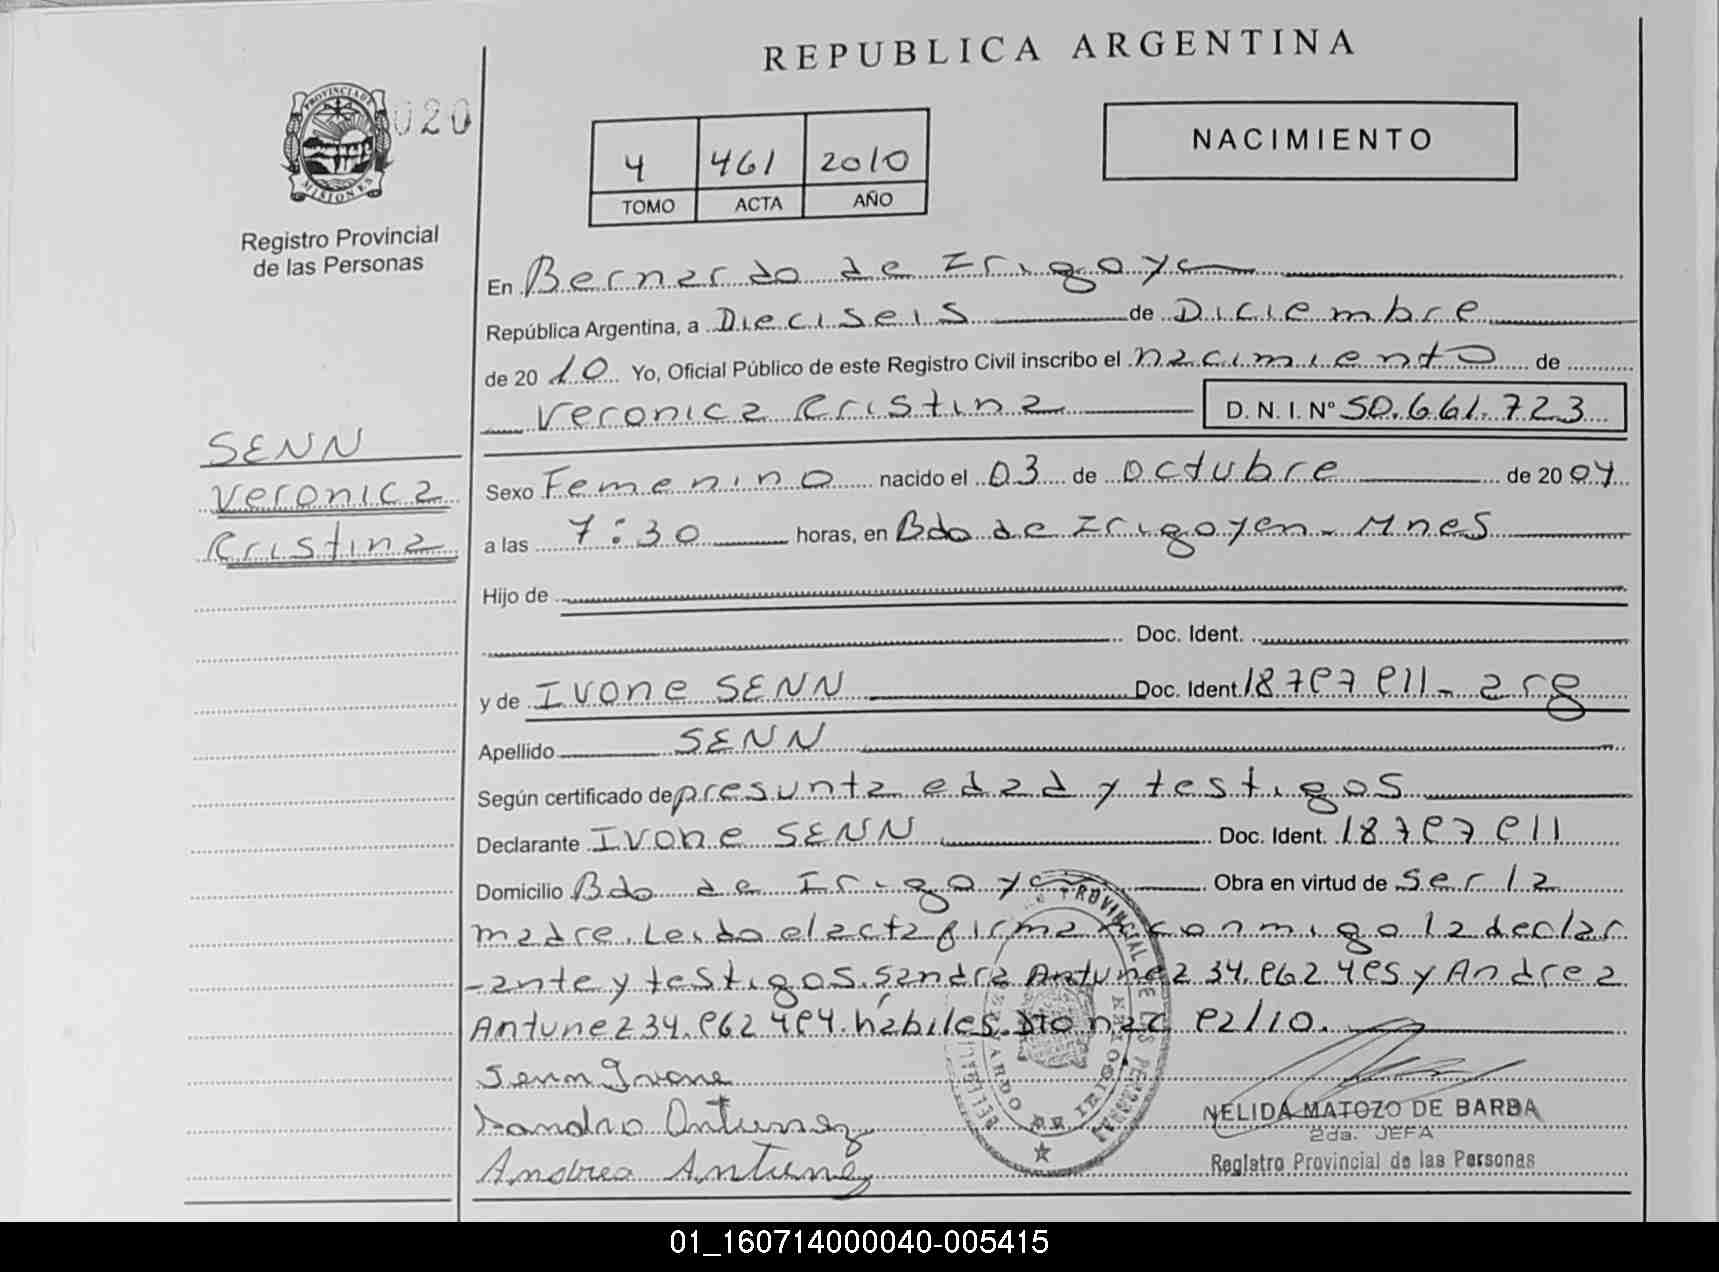 REPUBLICA ARGENTINA
PROVINCIA DE
MISIONES
020
Registro Provincial
de las Personas
4 461 2010
TOMO ACTA AÑO
NACIMIENTO
En Bernardo de Irigoye
República Argentina, a Dieciseis de Diciembre
de 20 10 Yo, Oficial Público de este Registro Civil inscribo el nacimiento de
Veronica Cristina D. N. I. Nº 50.661.723
SENN
Veronica
Cristina
Sexo Femenino nacido el 03 de octubre de 2004
a las 7:30 horas, en Bdo de Irigoyen - Mnes
Hijo de
Doc. Ident.
y de Ivone SENN Doc. Ident. arg
Apellido SENN
Según certificado de presunta edad y testigos
Declarante Ivone SENN Doc. Ident.
Domicilio Bdo de Irigoye Obra en virtud de ser la
madre. Leido el acta firma conmigo la declar
-ante y testigos. Sandra Antunez y Andrea
Antunez habiles. Dto nac
Senn Ivone
Sandra Antunez
Andrea Antunez
NELIDA MATOZO DE BARBA
2da. JEFA
Registro Provincial de las Personas
01_160714000040-005415